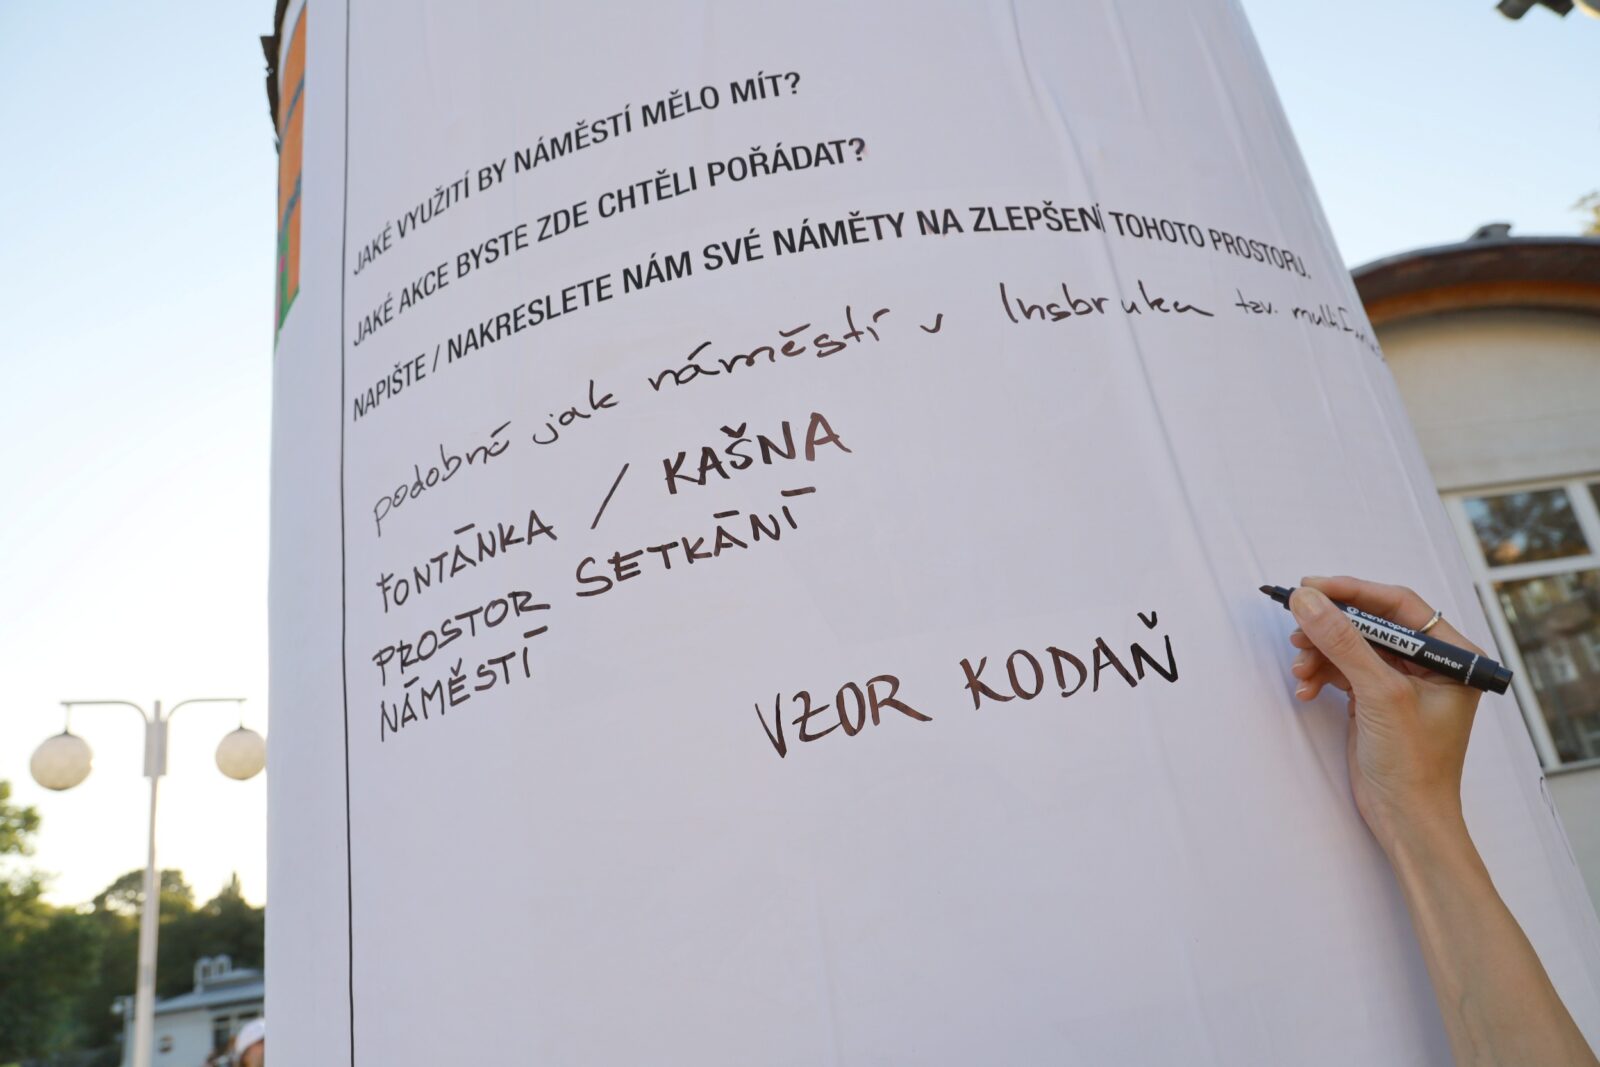 JAKÉ VYUŽITÍ BY NÁMĚSTÍ MĚLO MÍT?
JAKÉ AKCE BYSTE ZDE CHTĚLI POŘÁDAT?
NAPIŠTE / NAKRESLETE NÁM SVÉ NÁMĚTY NA ZLEPŠENÍ TOHOTO PROSTORU.
podobné jak náměstí v Insbruka tzv.
FONTÁNKA / KAŠNA
PROSTOR SETKÁNÍ
NÁMĚSTÍ
VZOR KODAŇ
centropen
MANENT
marker